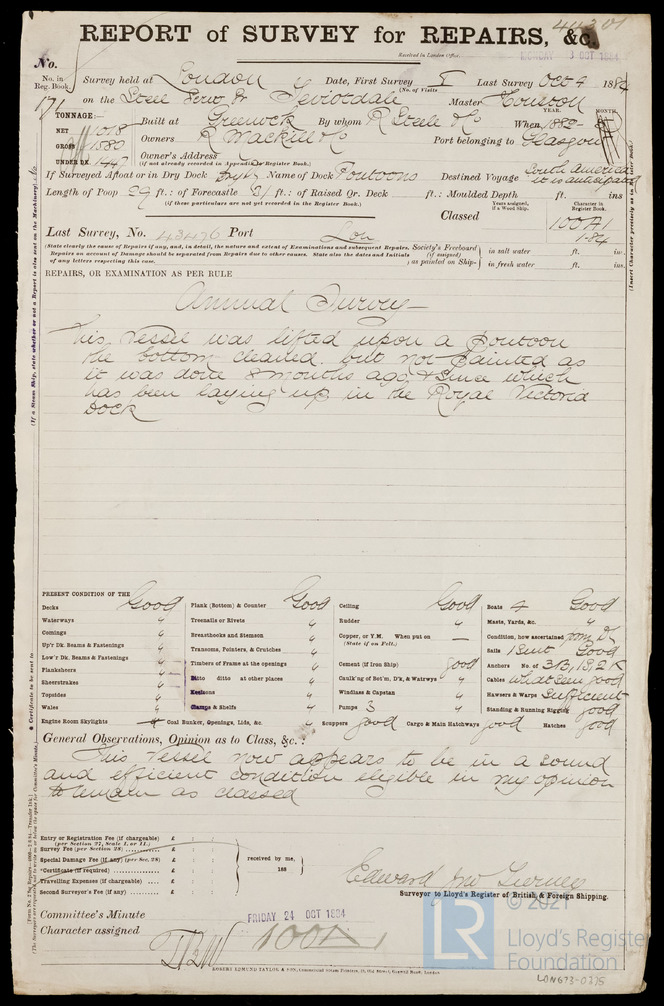 44301
REPORT of SURVEY for REPAIRS, &c.
Received in London Office, MONDAY OCT 1884
No.
No. in Reg. Book
Survey held at London Date, First Survey (No. of Visits I) Last Survey Oct 4 1884
on the Steel Screw Sr Teviotdale Master
TONNAGE:—
NET 1018
GROSS 1580
UNDER DK. 1447
Built at Greenock By whom R Steele & Co When YEAR. 1882 MONTH.
Owners R Mackill & Co Port belonging to Glasgow
Owner's Address
(if not already recorded in Appendix to Register Book.)
If Surveyed Afloat or in Dry Dock Dry Dk Name of Dock Pontoons Destined Voyage South America it is anticipated
Length of Poop 29 ft.: of Forecastle 31 ft.: of Raised Qr. Deck ft.: Moulded Depth ft. ins
(if these particulars are not yet recorded in the Register Book.)
Years assigned, if a Wood Ship.
Character in Register Book.
Classed 100A1
1.84
Last Survey, No. 43476 Port Lon
(State clearly the cause of Repairs if any, and, in detail, the nature and extent of Examinations and subsequent Repairs.
Repairs on account of Damage should be separated from Repairs due to other causes. State also the dates and Initials
of any letters respecting this case.
Society's Freeboard (if assigned) as painted on Ship— in salt water ft. in.
in fresh water ft. ins.
REPAIRS, OR EXAMINATION AS PER RULE
Annual Survey
This Vessel was lifted upon a pontoon
the bottom cleaned. but not painted as
it was done 8 months ago, & since which
has been laying up in the Royal Victoria
Dock
PRESENT CONDITION OF THE
Decks Good
Waterways "
Comings "
Up'r Dk. Beams & Fastenings "
Low'r Dk. Beams & Fastenings "
Planksheers "
Sheerstrakes "
Topsides "
Wales "
Engine Room Skylights
Plank (Bottom) & Counter Good
Treenails or Rivets "
Breasthooks and Stemson "
Transoms, Pointers, & Crutches "
Timbers of Frame at the openings "
Ditto ditto at other places "
Keelsons "
Clamps & Shelfs "
Coal Bunker, Openings, Lids, &c. "
Ceiling Good
Rudder "
Copper, or Y.M. When put on —
(State if on Felt.)
Cement (if from Ship) good
Caulk'ng of Bot'm, D'k, & Watrwys "
Windlass & Capstan "
Pumps 3 "
Scuppers good Cargo & Main Hatchways good Hatches good
Boats 4 Good
Masts, Yards, &c. "
Condition, how ascertained from Dk
Sails 1 Suit Good
Anchors No. of 3B, 1S, 2K
Cables what seen good
Hawsers & Warps Sufficient
Standing & Running Rigging good
General Observations, Opinion as to Class, &c.:
This Vessel now appears to be in a sound
and efficient condition eligible in my opinion
to remain as classed
Entry or Registration Fee (if chargeable) £ : :
(per Section 27, Scale I. or II.)
Survey Fee (per Section 28) £ : :
Special Damage Fee (if any) (per Sec. 28) £ : :
*Certificate (if required) £ : :
Travelling Expenses (if chargeable) £ : :
Second Surveyor's Fee (if any) £ : :
received by me,
188
Edward Jno Tierney
Surveyor to Lloyd's Register of British & Foreign Shipping.
Committee's Minute FRIDAY 24 OCT 1884
Character assigned 100A1
ROBERT EDMUND TAYLOR & SON,
© 2021
LR
Lloyd's Register
Foundation
LON673-0275